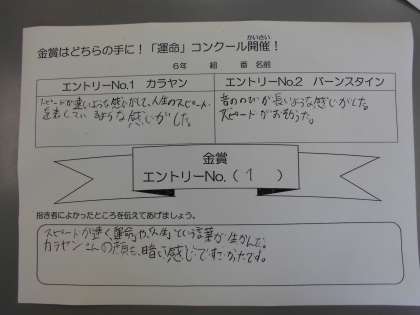 金賞はどちらの手に!「運命」コンクール開催!
かいさい
6年 組 番 名前
エントリーNo.1 カラヤン
エントリーNo.2 バーンスタイン
スピードが速いような感じがして、人生のスピード
を表しているような感じがした。
音ののびが長いような感じがした。
スピードがおそかった。
金賞
エントリーNo.( 1 )
指き者によかったところを伝えてあげましょう。
スピードが速く「運命」や「人生」という言葉が生かんだ。
カラヤンさんの顔も、暗い感じですごかったです。